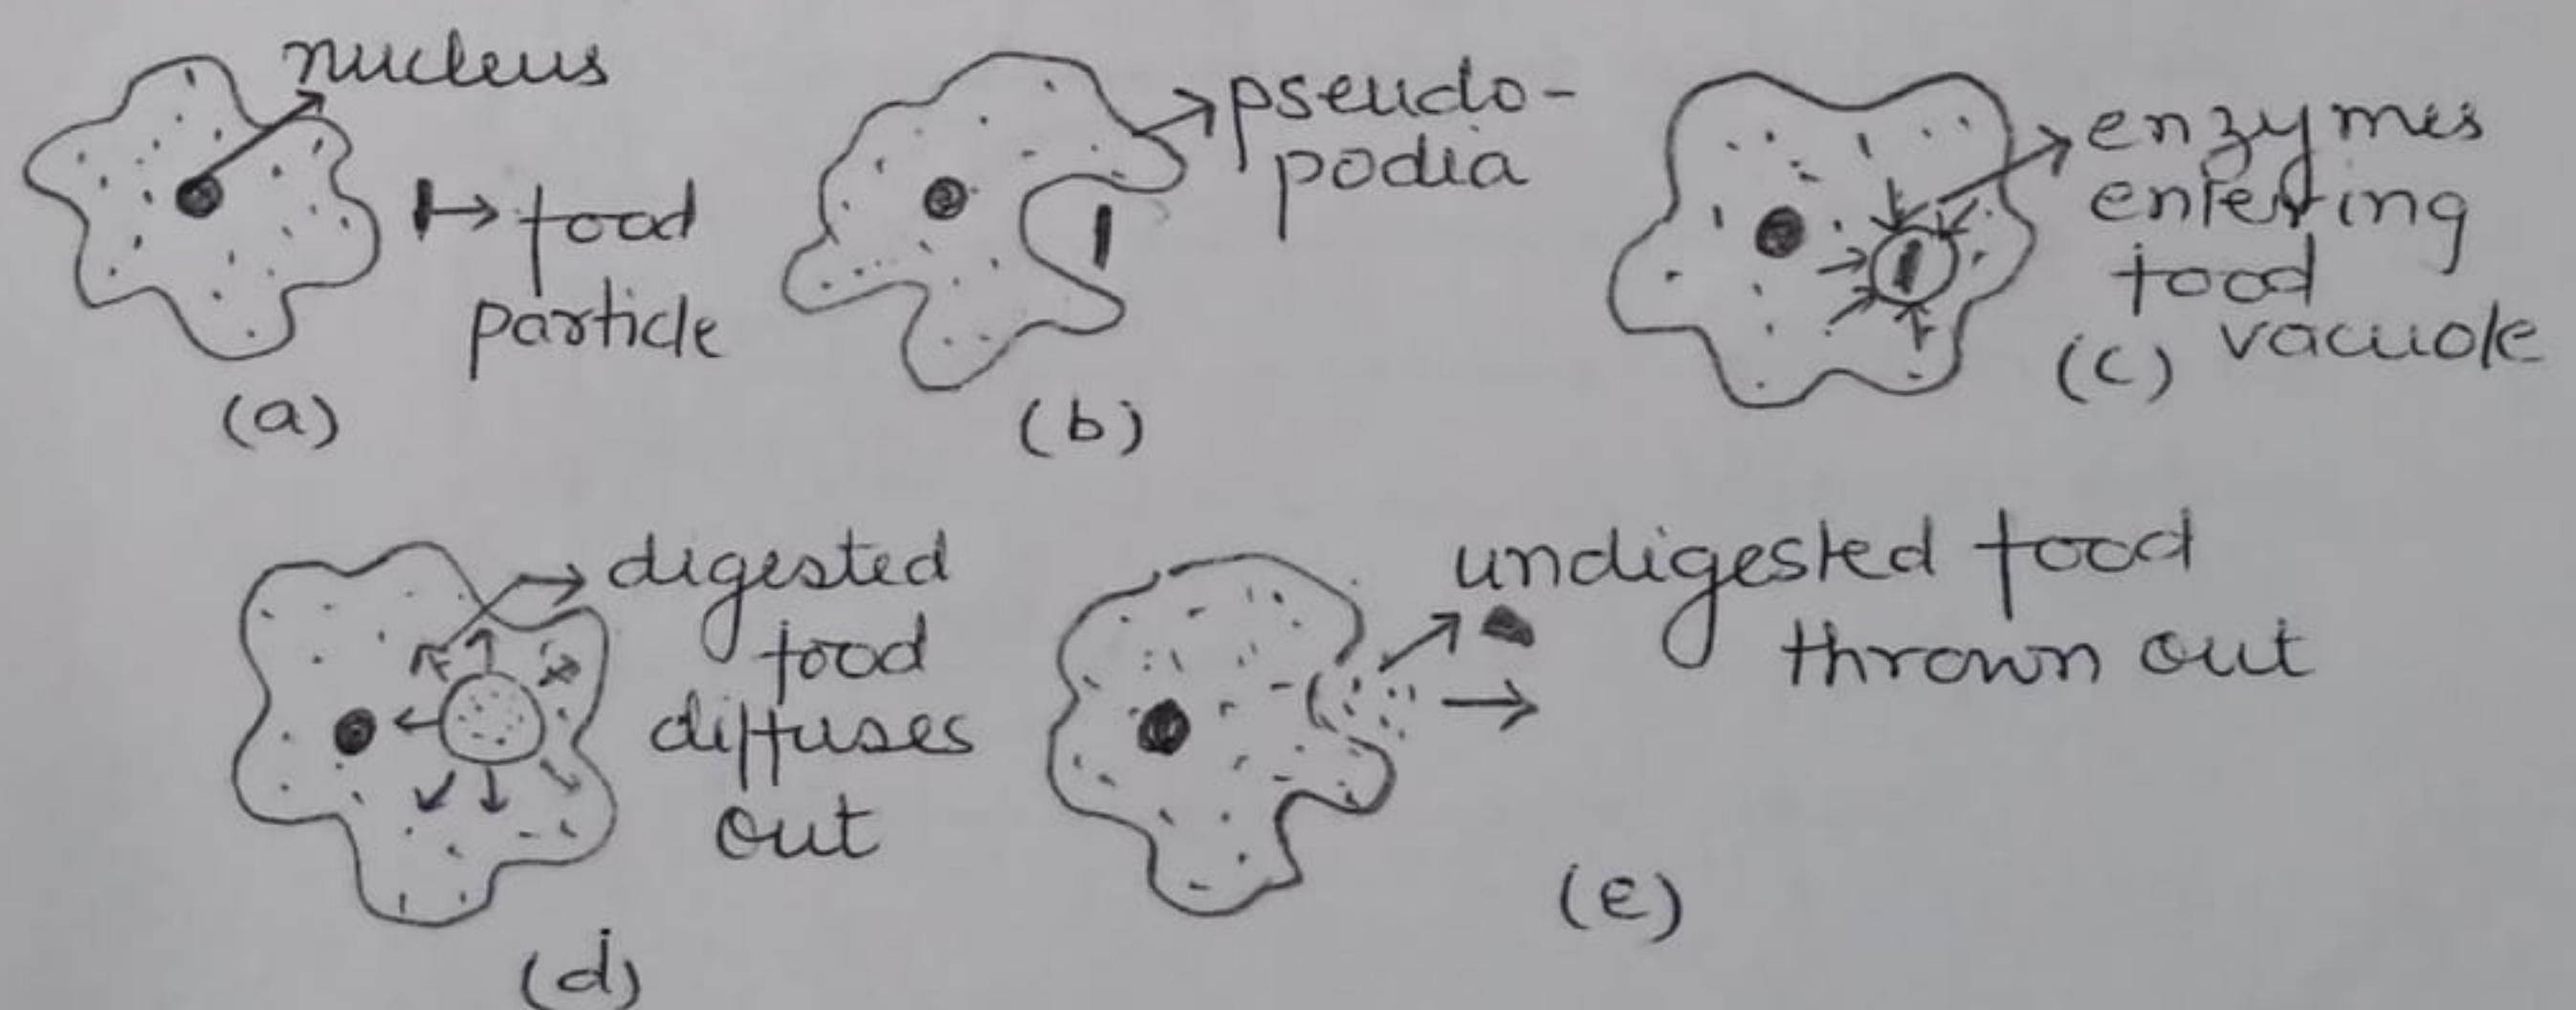 nucleus
food
particle
(a)
pseudo-
podia
(b)
enzymes
entering
food
vacuole
(c)
digested
food
diffuses
out
(d)
undigested food
thrown out
(e)